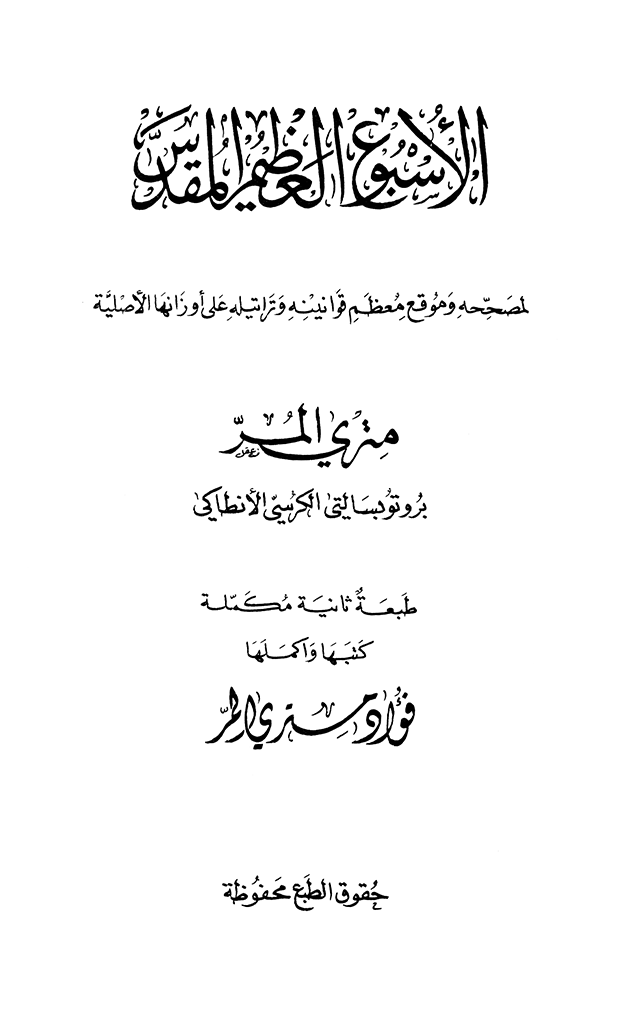 الأُسْبُوع العَظيم المُقدَّس
لمصَحِّحهِ وَمُوَقع مُعظَمِ قَوَانينِهِ وَتَرَاتيلهِ عَلى أوزَانهَا الأصْليَّة
مِتري المُرّ
بروتوبسالتي الكرسيّ الأنطاكي
طَبعَةٌ ثانيَة مُكَمّلة
كَتبَهَا وَاكمَلَهَا
فُؤَاد مِتري المرّ
حُقوق الطَّبع محَفوُظة